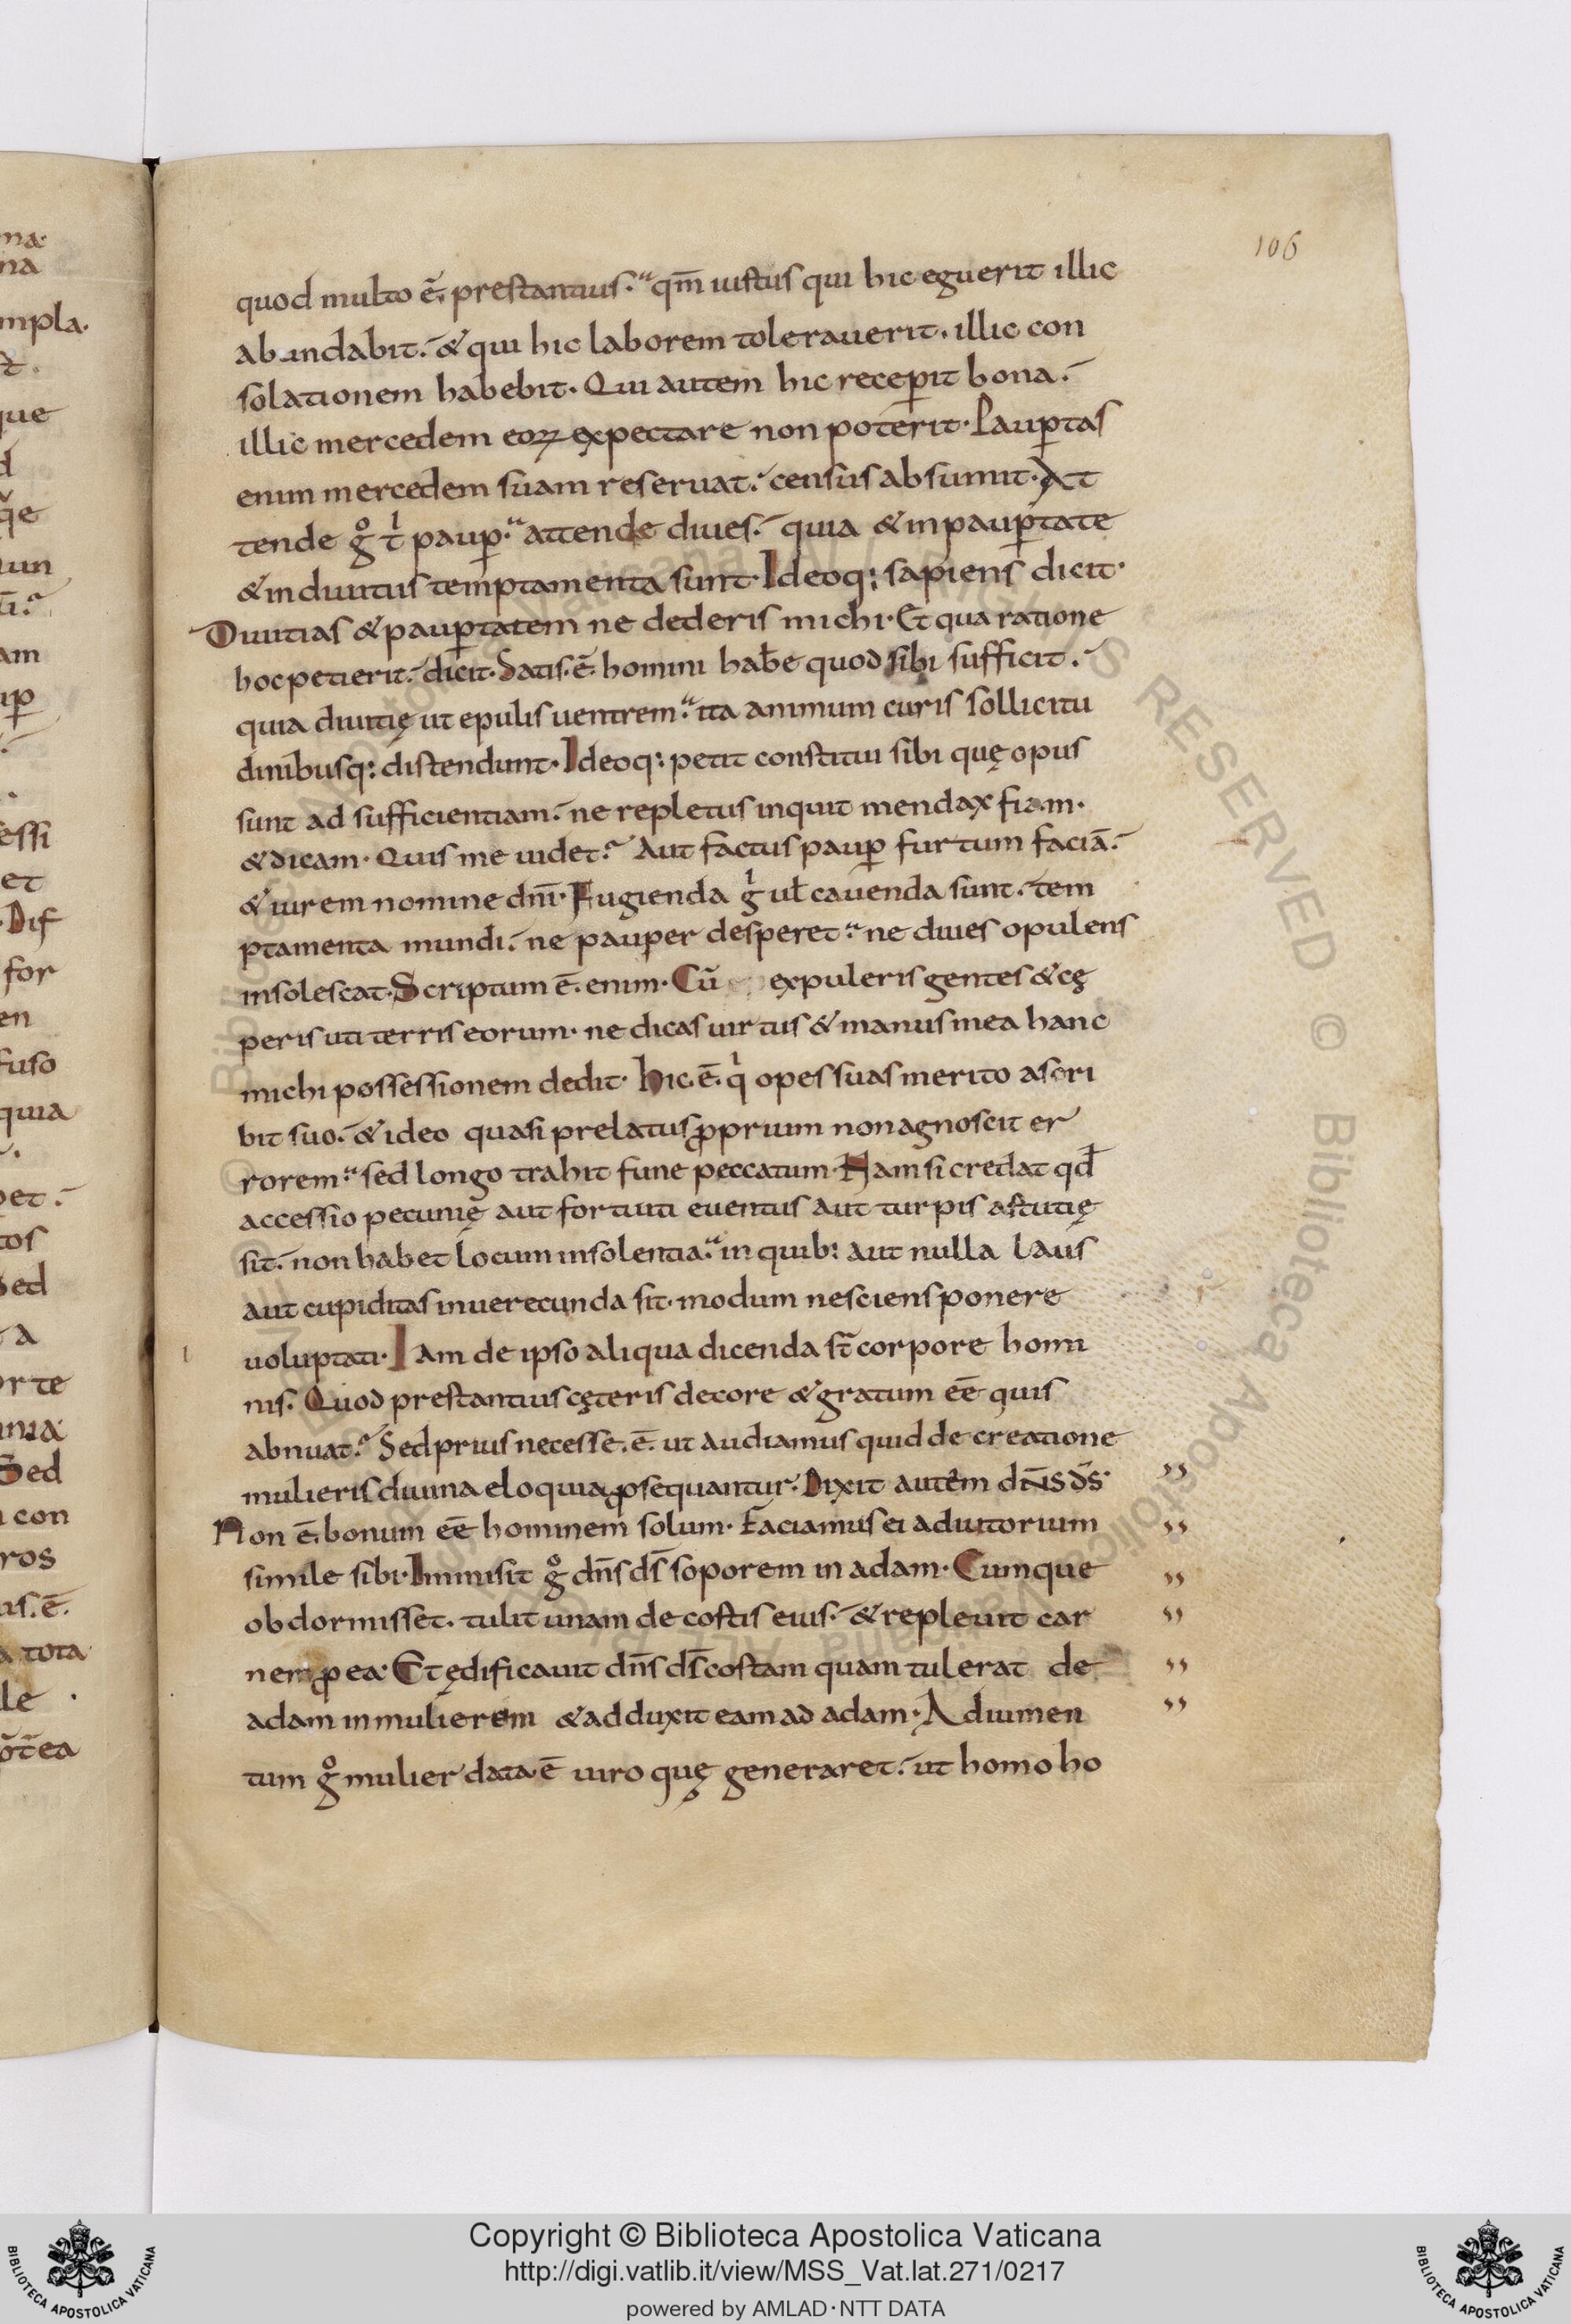 106
quod multo ē. prestantius. qm̄ iustus qui hic eguerit illic
abundabit. & qui hic laborem tolerauerit. illic con
solationem habebit. Qui autem hic recep̄it bona.
illic mercedem eoꝝ expectare non poterit. Paup̄tas
enim mercedem suam reseruat. census absumit. At
tende g̊ t̄ paup̄. attende diues. quia & in paup̄tate
& in diuitiis temptamenta sunt. Ideoq: sapiens dicit.
Diuitias & paup̄tatem ne dederis michi. Et qua ratione
hoc petierit. dicit. Satis. ē. homini hab̄e quod sibi sufficit.
quia diuitię ut epulis uentrem. ita animum curis sollicitu
dinibusq: distendunt. Ideoq: petit constitui sibi quę opus
sunt ad sufficientiam. ne repletus inquit mendax fiam.
& dicam. Quis me uidet? Aut factus paup̄ furtum faciā.
& iurem nomine dnī. Fugienda g̍ ul̄ cauenda sunt. tem
ptamenta mundi. ne pauper desperet. ne diues opulens
insolescat. Scriptum ē. enim. Cū expuleris gentes & cę
peris uti terris eorum. ne dicas uirtus & manus mea hanc
michi possessionem dedit. hic. ē. q̍ opes suas merito ascri
bit suo. & ideo quasi prelatus ꝓprium non agnoscit er
rorem. sed longo trahit fune peccatum. Nam si credat qđ
accessio pecunię aut fortuiti euentus aut turpis astutię
sit. non habet locum insolentia. in quib: aut nulla laus
aut cupiditas inuerecunda sit. modum nesciens ponere
uoluptati. Iam de ipso aliqua dicenda st̄ corpore homi
nis. Quod prestantius cęteris decore & gratum eē quis
abnuat? Sed prius necesse. ē. ut audiamus quid de creatione
mulieris diuina eloquia ꝓsequantur. Dixit autem dn̄s ds̄.
Non ē. bonum eē hominem solum. Faciamus ei adiutorium
simile sibi. Immisit g̊ dn̄s ds̄ soporem in adam. Cumque
obdormisset. tulit unam de costis eius. & repleuit car
nem ꝓ ea. Et ędificauit dn̄s ds̄ costam quam tulerat de
adam in mulierem & adduxit eam ad adam. Adiumen
tum g̊ mulier data ē uiro quę generaret. ut homo ho
Copyright © Biblioteca Apostolica Vaticana
http://digi.vatlib.it/view/MSS_Vat.lat.271/0217
powered by AMLAD·NTT DATA
BIBLIOTECA APOSTOLICA VATICANA
BIBLIOTECA APOSTOLICA VATICANA